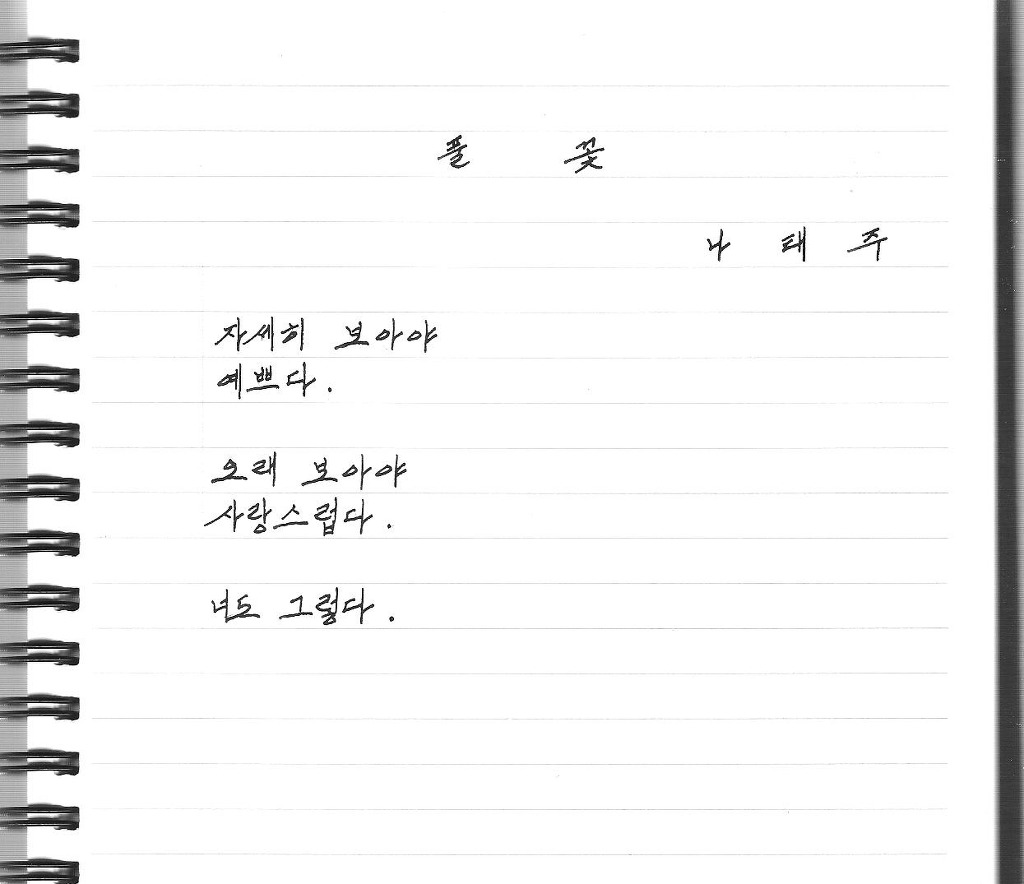 풀 꽃
나 태 주
자세히 보아야
예쁘다.
오래 보아야
사랑스럽다.
너도 그렇다.